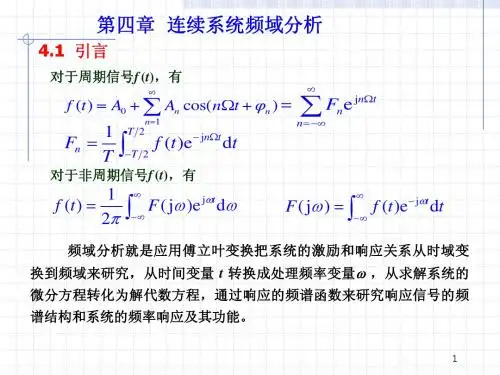 第四章 连续系统频域分析
4.1 引言
对于周期信号f (t)，有
f (t) = A₀ + ∑_{n=1}^{∞} Aₙ cos(nΩt + φₙ) = ∑_{n=-∞}^{∞} Fₙ e^{jnΩt}
Fₙ = 1/T ∫_{-T/2}^{T/2} f (t)e^{-jnΩt} dt
对于非周期信号f (t)，有
f (t) = 1/2π ∫_{-∞}^{∞} F(jω)e^{jωt} dω  F(jω) = ∫_{-∞}^{∞} f (t)e^{-jωt} dt
频域分析就是应用傅立叶变换把系统的激励和响应关系从时域变
换到频域来研究，从时间变量 t 转换成处理频率变量ω，从求解系统的
微分方程转化为解代数方程，通过响应的频谱函数来研究响应信号的频
谱结构和系统的频率响应及其功能。
1